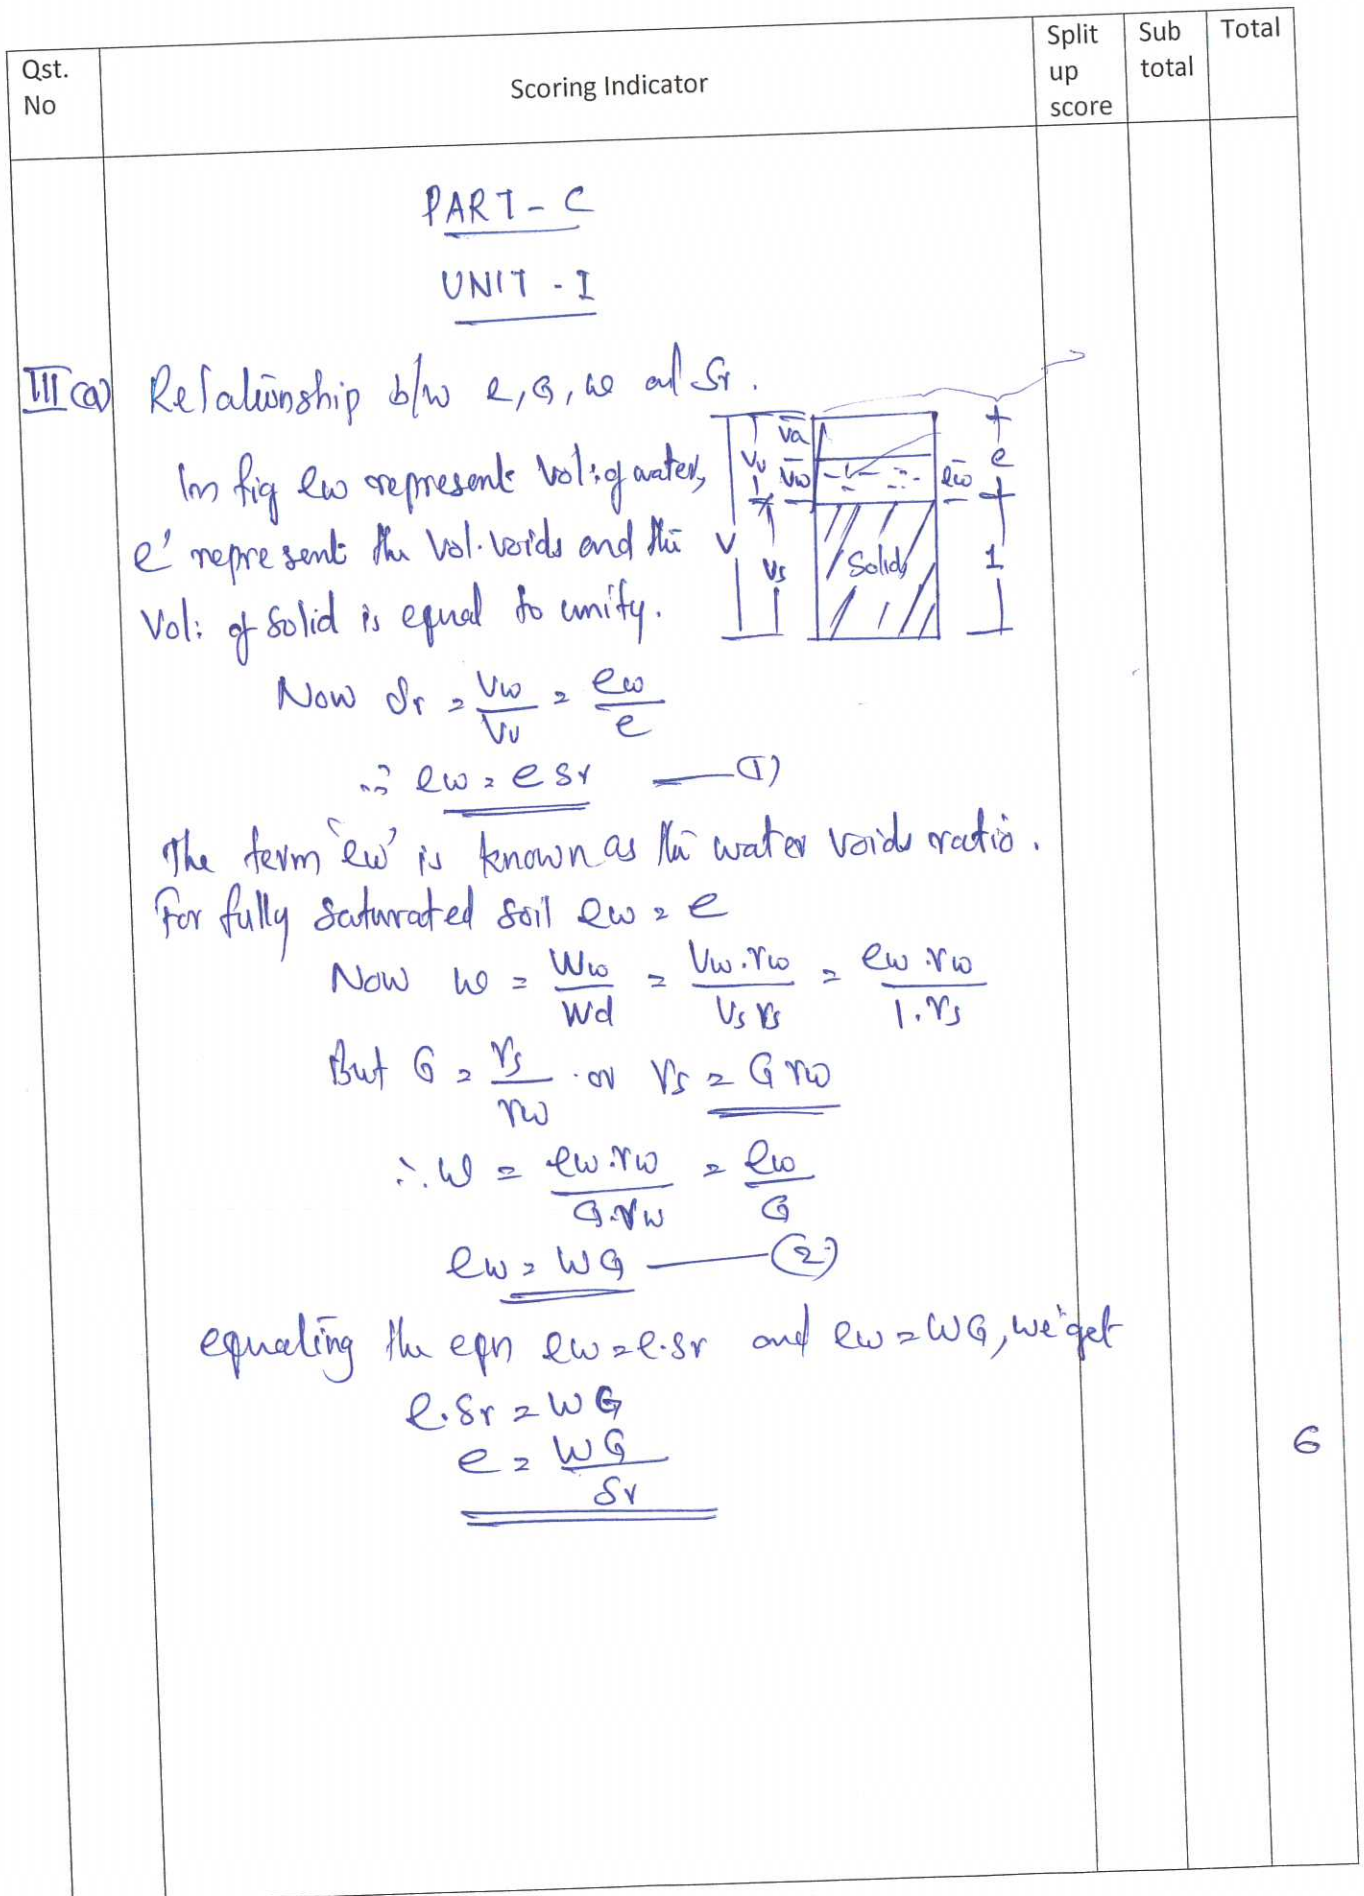 Qst. No
Scoring Indicator
Split up score
Sub total
Total
PART - C
UNIT - I
III (a) Relationship b/w e, G, w and Sr.
In fig ew represent Vol: of water,
e' represent the Vol. voids and the
Vol: of Solid is equal to unity.
Va
Vv
Vw
V
Vs
Solid
ew
e
1
Now Sr = Vw/Vv = ew/e
∴ ew = e Sr — (1)
The term 'ew' is known as the water voids ratio.
For fully saturated soil ew = e
Now w = Ww/Wd = Vw.γw/Vs γs = ew.γw/1.γs
But G = γs/γw or γs = G γw
∴ w = ew.γw/G.γw = ew/G
ew = WG — (2)
equating the eqn ew = e.sr and ew = WG, we get
e.Sr = WG
e = WG/Sr
6